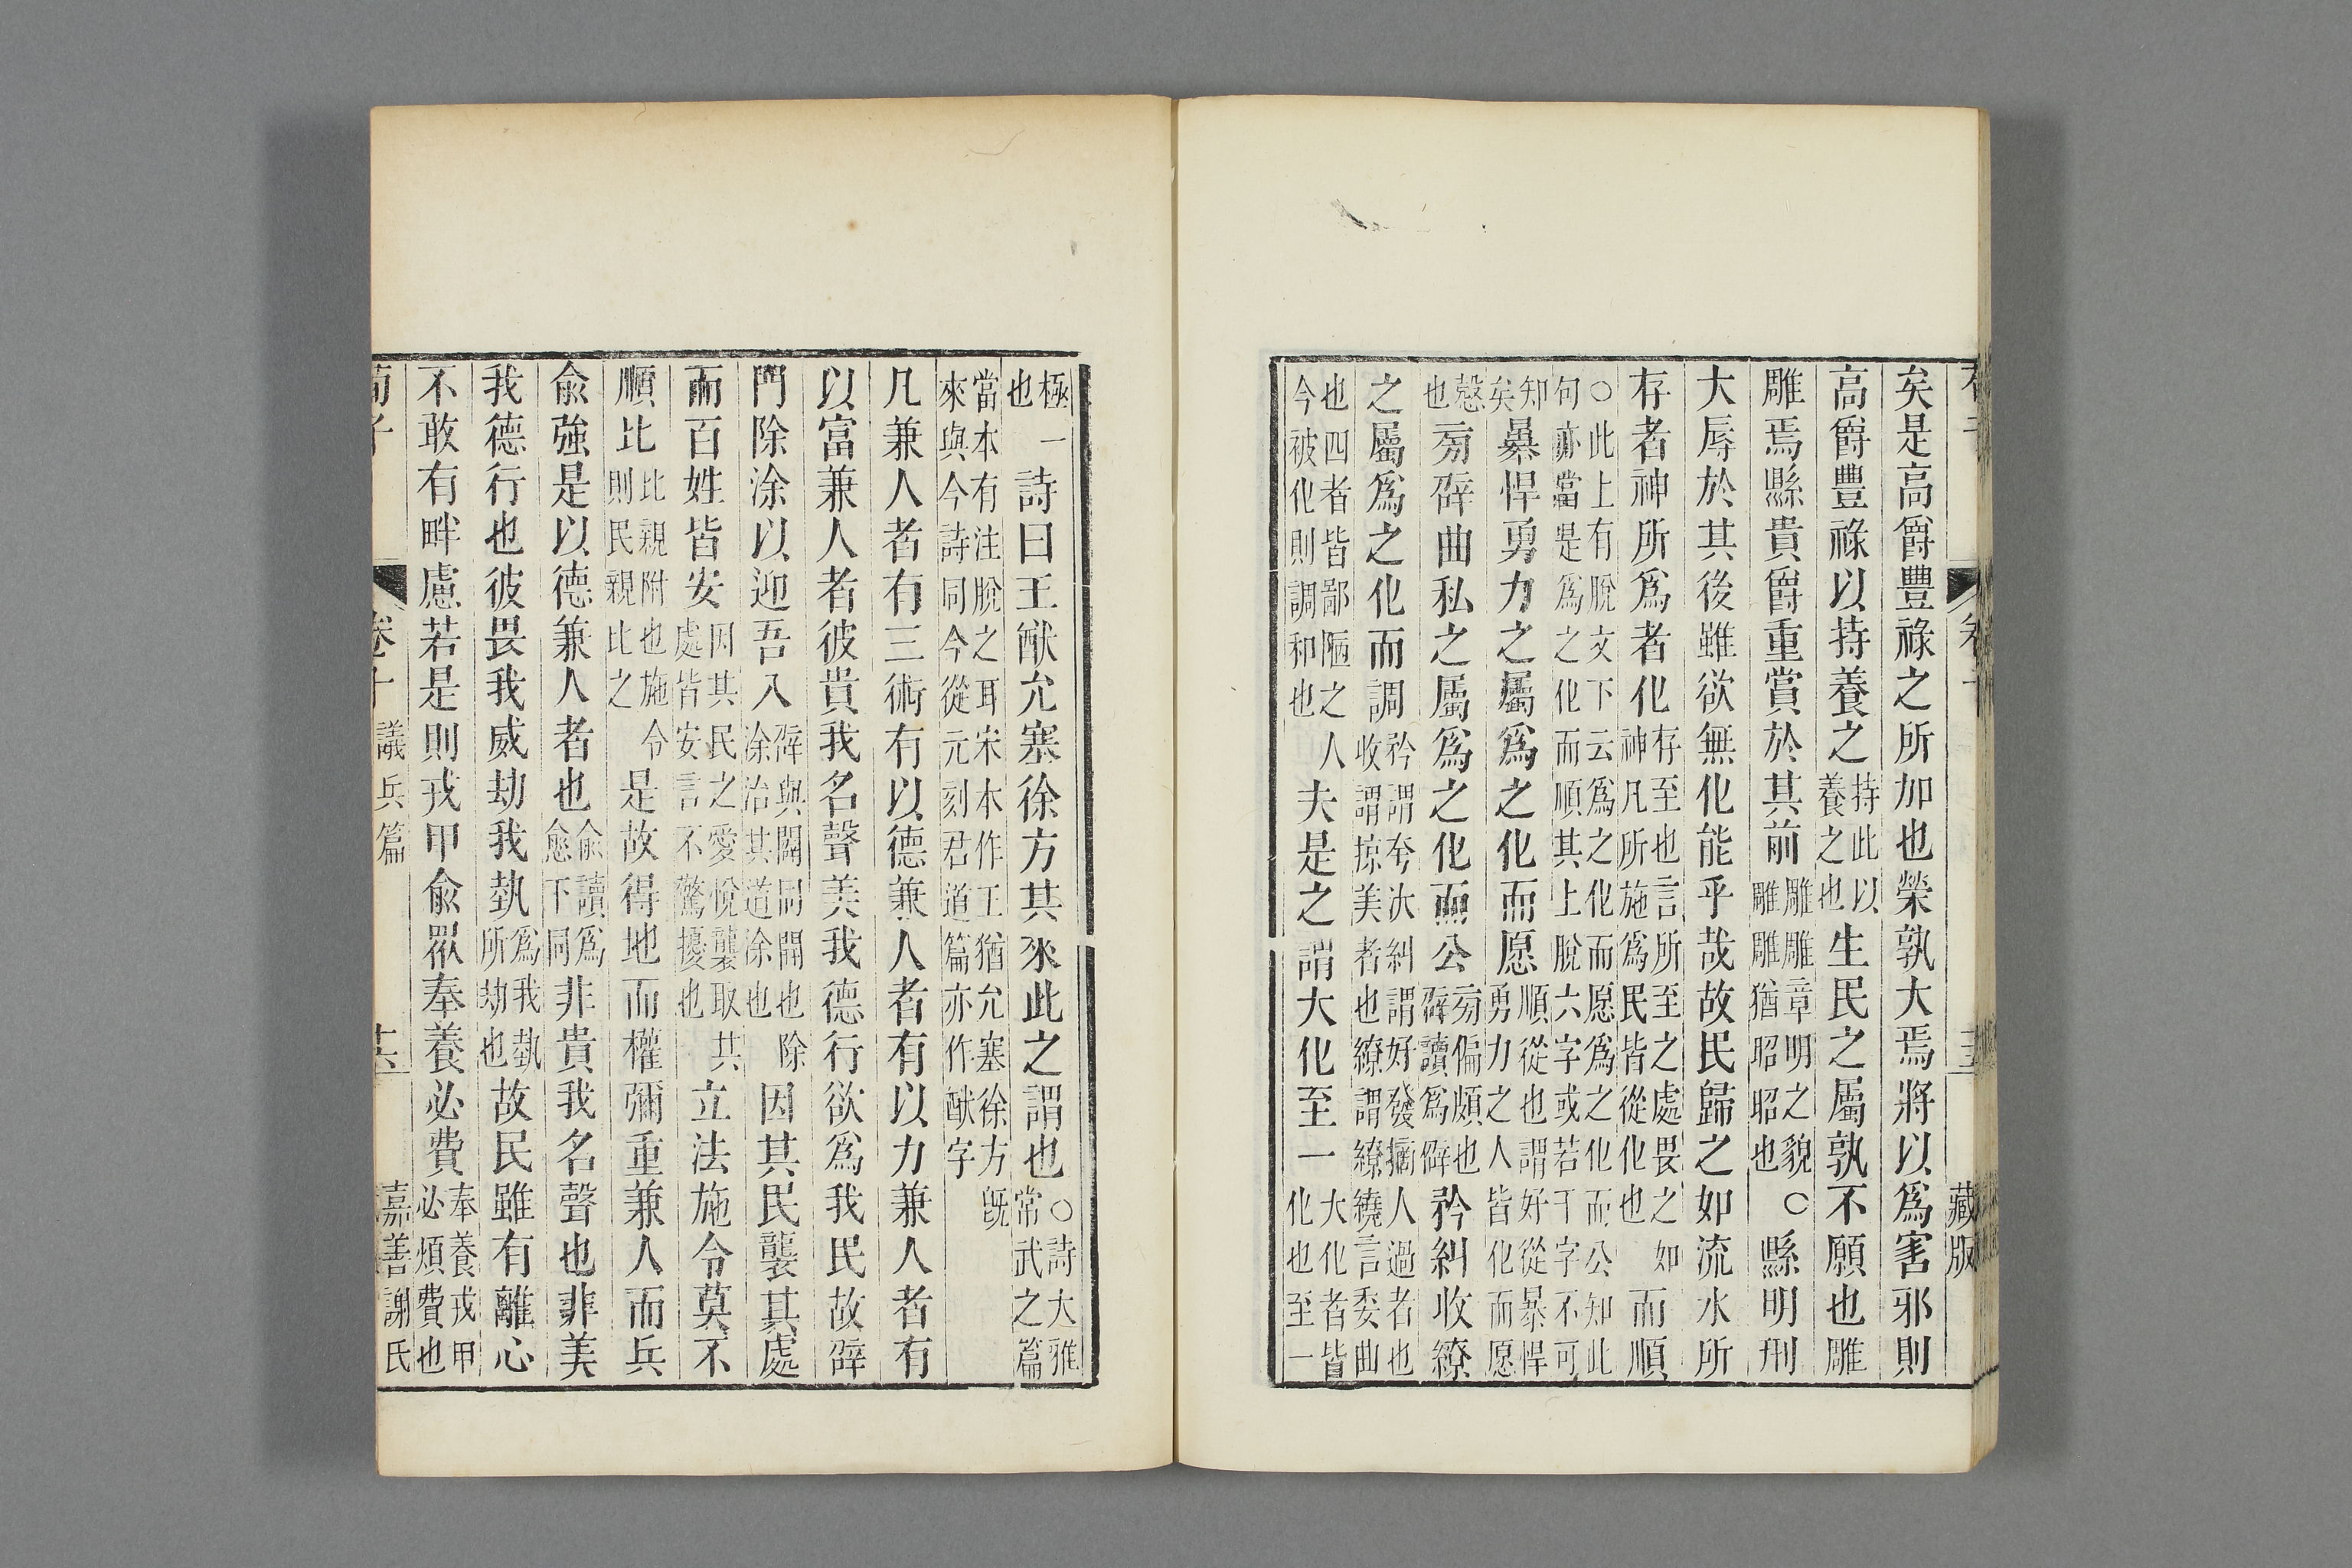 藏版
矣是高爵豐祿之所加也榮孰大焉將以爲害邪則
高爵豐祿以持養之持此以養之也生民之屬孰不願也雕
雕焉縣貴爵重賞於其前雕雕章明之貌雕雕猶昭昭也○縣明刑
大辱於其後雖欲無化能乎哉故民歸之如流水所
存者神所爲者化存至也言所至之處畏之如神凡所施爲民皆從化也而順
○此上有脫文下云爲之化而愿爲之化而公知此句亦當是爲之化而順其上脫六字或若干字不可
知矣暴悍勇力之屬爲之化而愿順從也謂好從暴悍勇力之人皆化而愿
慤也旁辟曲私之屬爲之化而公旁偏頗也辟讀爲僻矜糾收繚
之屬爲之化而調矜謂夸汏糾謂好發擿人過者也收謂掠美者也繚謂繚繞言委曲
也四者皆鄙陋之人今被化則調和也夫是之謂大化至一大化者皆化也至一
極一也詩曰王猷允塞徐方其來此之謂也○詩大雅常武之篇
當本有注脫之耳宋本作王猶允塞徐方旣來與今詩同今從元刻君道篇亦作猷字
凡兼人者有三術有以德兼人者有以力兼人者有
以富兼人者彼貴我名聲美我德行欲爲我民故辟
門除涂以迎吾入辟與闢同開也除涂治其道涂也因其民襲其處
而百姓皆安因其民之愛悅襲取其處皆安言不驚擾也立法施令莫不
順比比親附也施令則民親比之是故得地而權彌重兼人而兵
俞強是以德兼人者也俞讀爲愈下同非貴我名聲也非美
我德行也彼畏我威劫我埶爲我埶所劫也故民雖有離心
不敢有畔慮若是則戎甲俞眾奉養必費奉養戎甲必煩費也
荀子 卷十 議兵篇 十六 嘉善謝氏